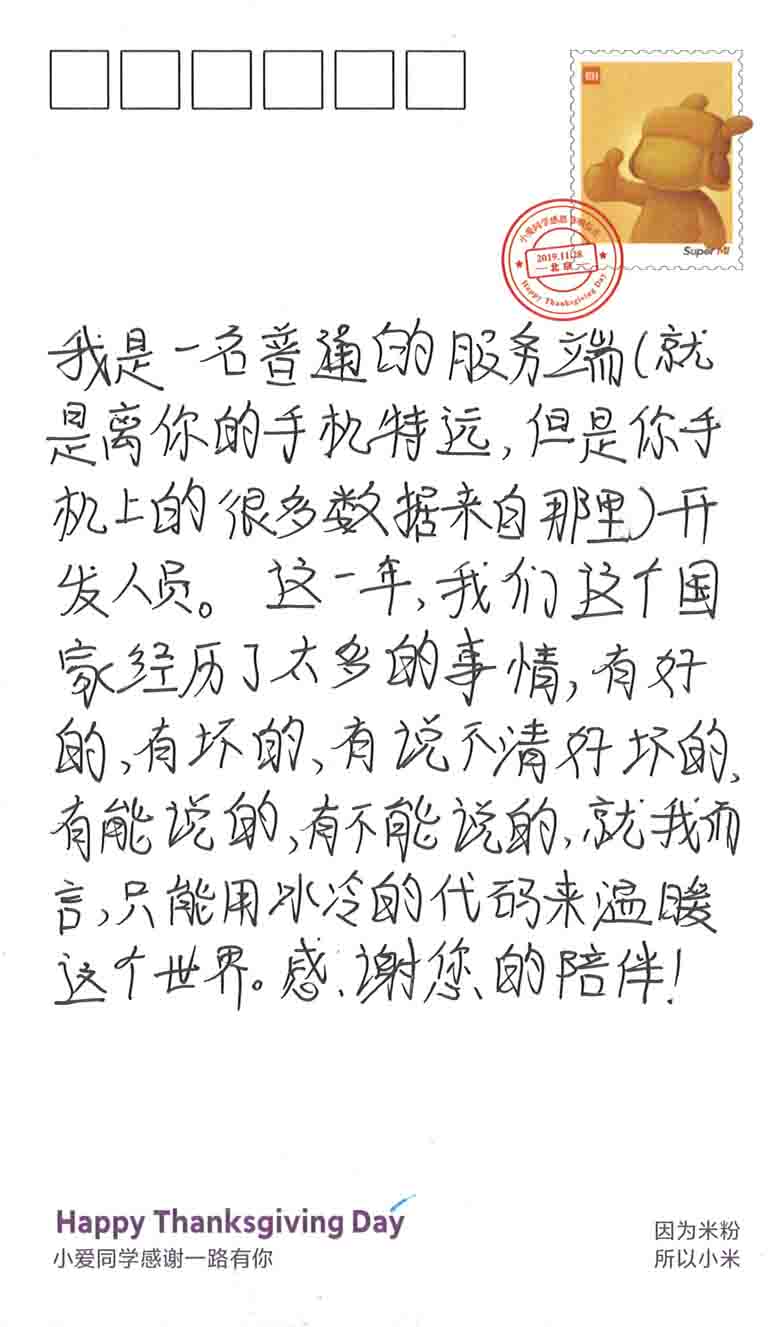 MI
Super MI
2019.11.28
北京
Happy Thanksgiving Day
我是一名普通的服务端(就
是离你的手机特远,但是你手
机上的很多数据来自那里)开
发人员。 这一年,我们这个国
家经历了太多的事情,有好
的,有坏的,有说不清好坏的,
有能说的,有不能说的,就我而
言,只能用冰冷的代码来温暖
这个世界。感谢您的陪伴!
Happy Thanksgiving Day
小爱同学感谢一路有你
因为米粉
所以小米